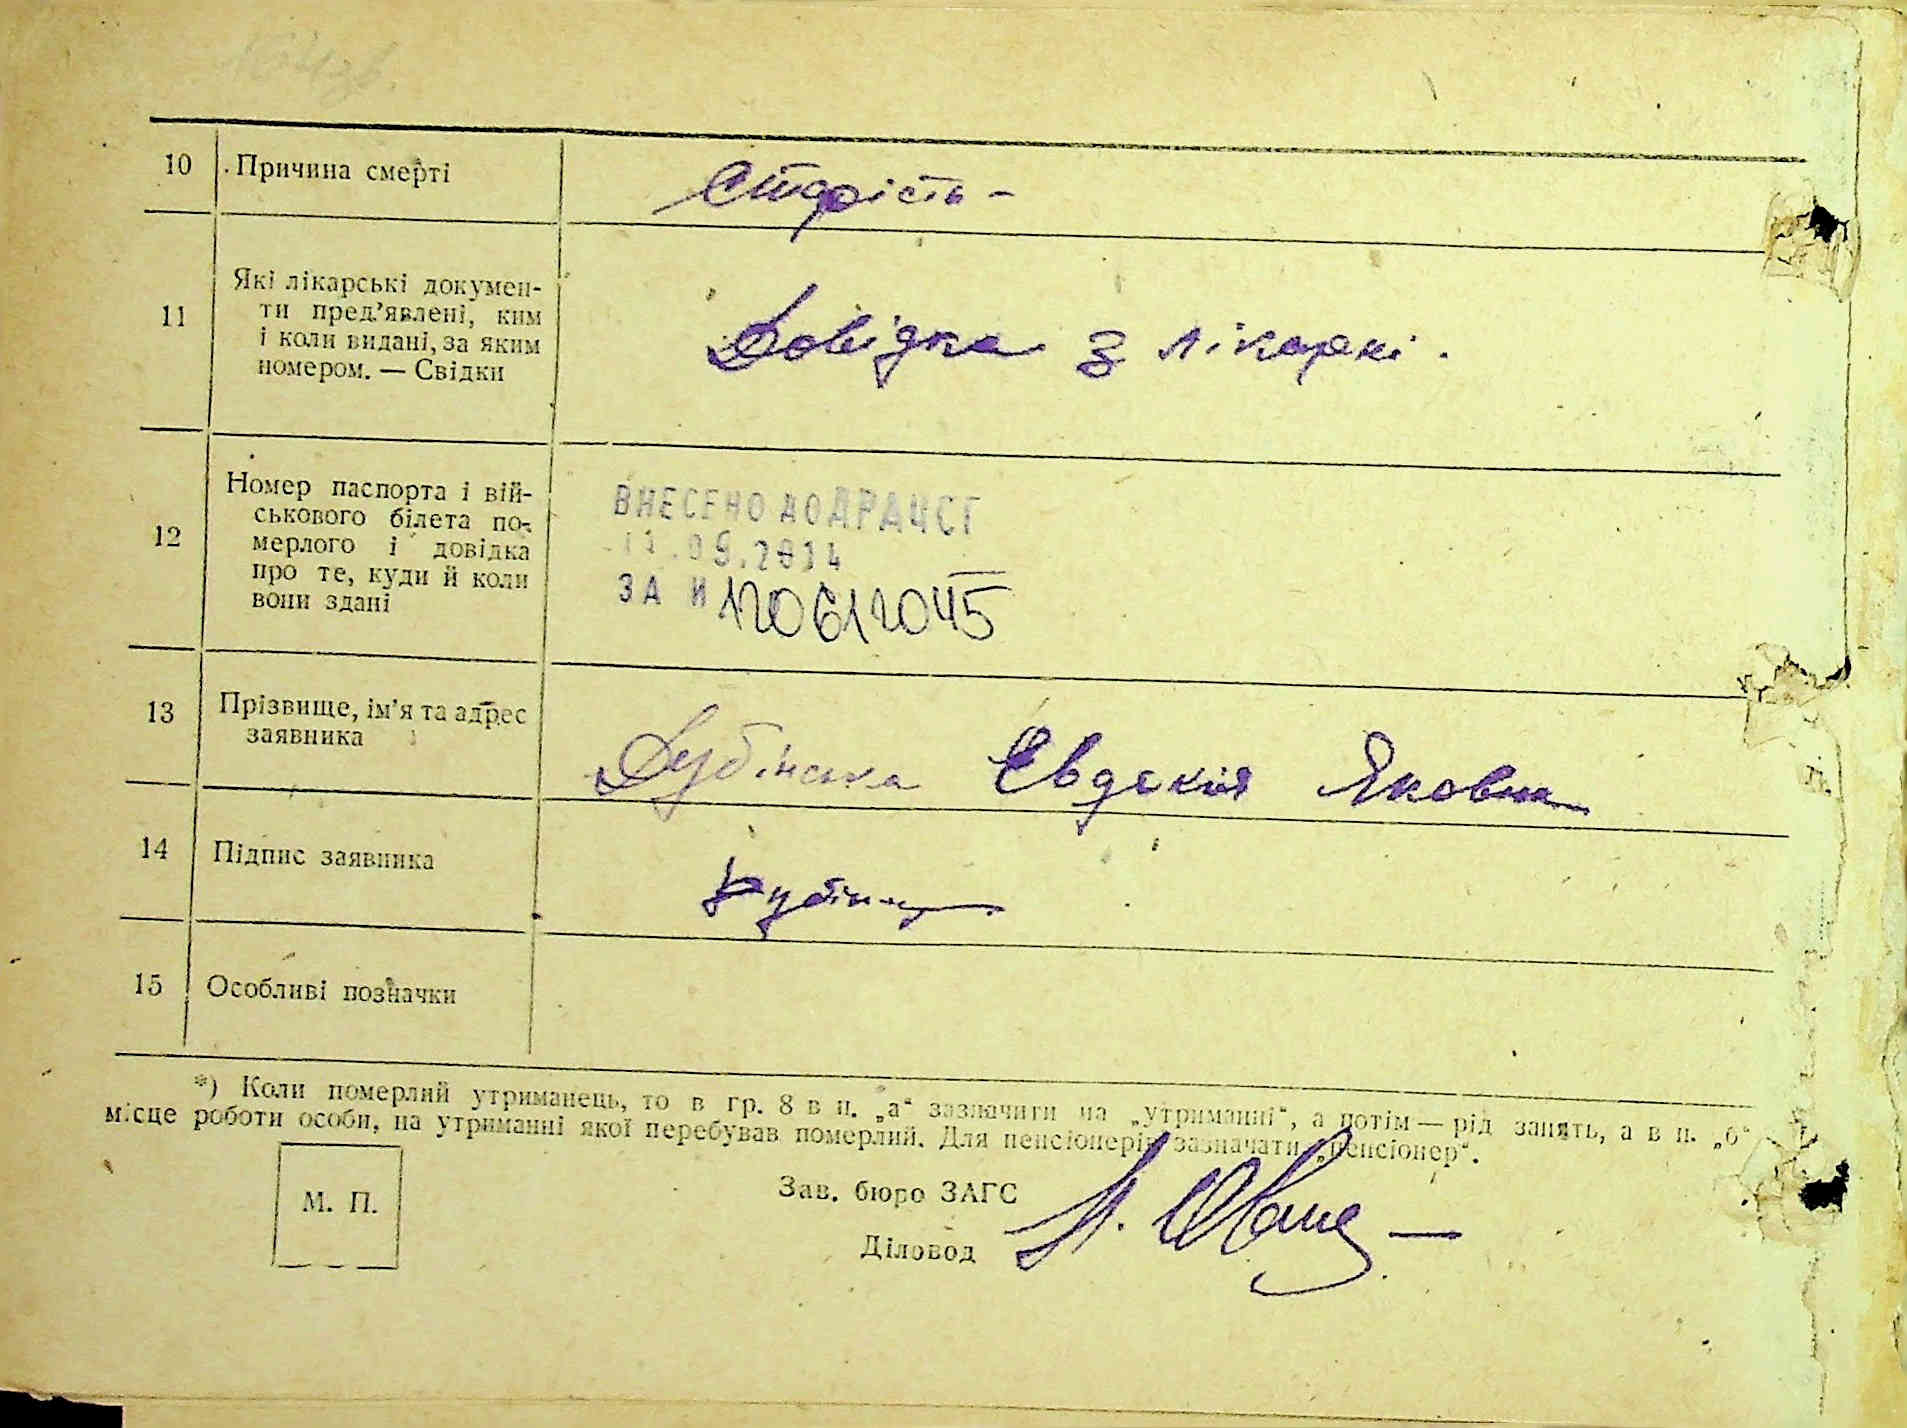 10 Причина смерті Старість -
11 Які лікарські докумен-
ти пред'явлені, ким
і коли видані, за яким
номером. — Свідки
Довідка з лікарні.
12 Номер паспорта і вій-
ськового білета по-
мерлого і довідка
про те, куди й коли
вони здані
ВНЕСЕНО ДО ДРАЦСГ
11.09.2014
ЗА И 120612045
13 Прізвище, ім'я та адрес
заявника
Дубінська Євдокія Яковн
14 Підпис заявника
15 Особливі позначки
*) Коли померлий утриманець, то в гр. 8 в п. „а“ зазначити на „утриманні“, а потім — рід занять, а в п. „б“
місце роботи особи, на утриманні якої перебував померлий. Для пенсіонерів зазначати „пенсіонер“.
М. П.
Зав. бюро ЗАГС
Діловод